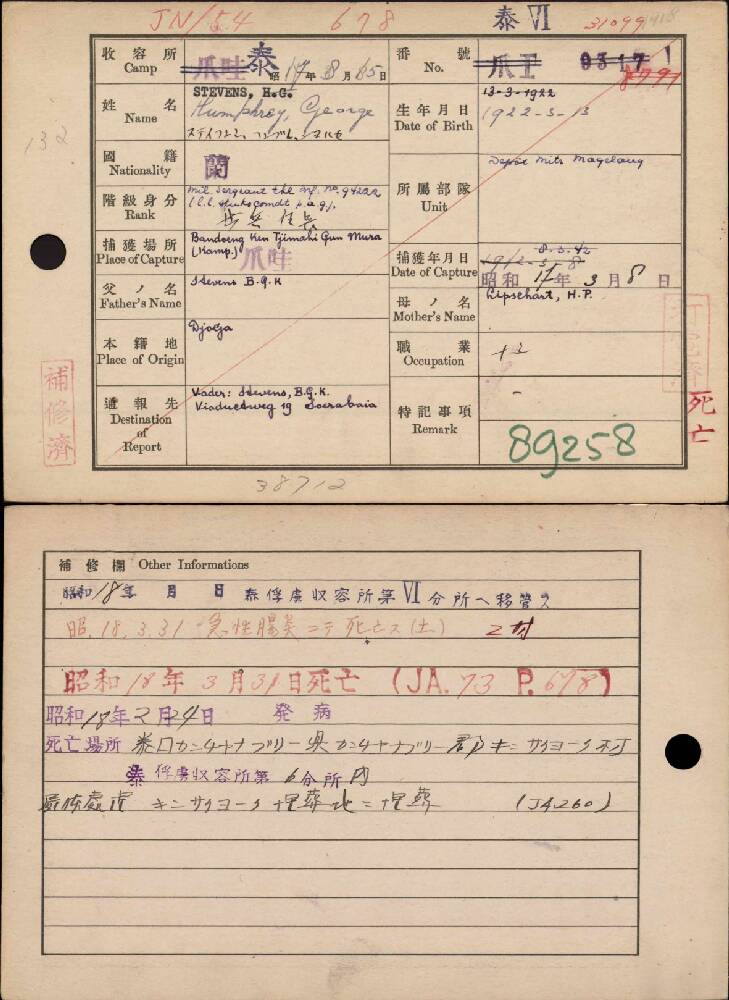 JN/54 678 泰 VI 31099 1418
收容所 Camp 爪哇 泰 昭 17年 8月 15日 番號 No. 爪王 9317 1
8791
132
姓名 Name STEVENS, H.G. Humphrey, George
生年月日 Date of Birth 13-3-1922 1922-3-13
國籍 Nationality 蘭
階級身分 Rank mil. sergeant
所屬部隊 Unit Depot mits Magelang
捕獲場所 Place of Capture Bandoeng Ken Tjimahi Gun Mura (Kamp.) 爪哇
捕獲年月日 Date of Capture 8-3-42 1942-3-8 昭和 17年 3月 8日
父ノ名 Father's Name Stevens B.G.K
母ノ名 Mother's Name Lipschart, H.P.
本籍地 Place of Origin Djogja
職業 Occupation
通報先 Destination of Report Vader: Stevens, B.G.K. Viaductweg 19 Soerabaia
特記事項 Remark -
89258
補修濟
死亡
38712
補修欄 Other Informations
昭和18年 月 日 泰俘虜収容所第 VI 分所ヘ移管ス
昭.18.3.31 急性腸炎ニテ死亡ス(土)
昭和18年3月31日死亡 (JA.73 P.678)
昭和18年2月24日 発病
死亡場所 泰国カンチャナブリー県カンチャナブリー郡キンサイヨーク村
泰俘虜収容所第6分所内
屍体處理 キンサイヨーク埋葬地ニ埋葬 (JA260)